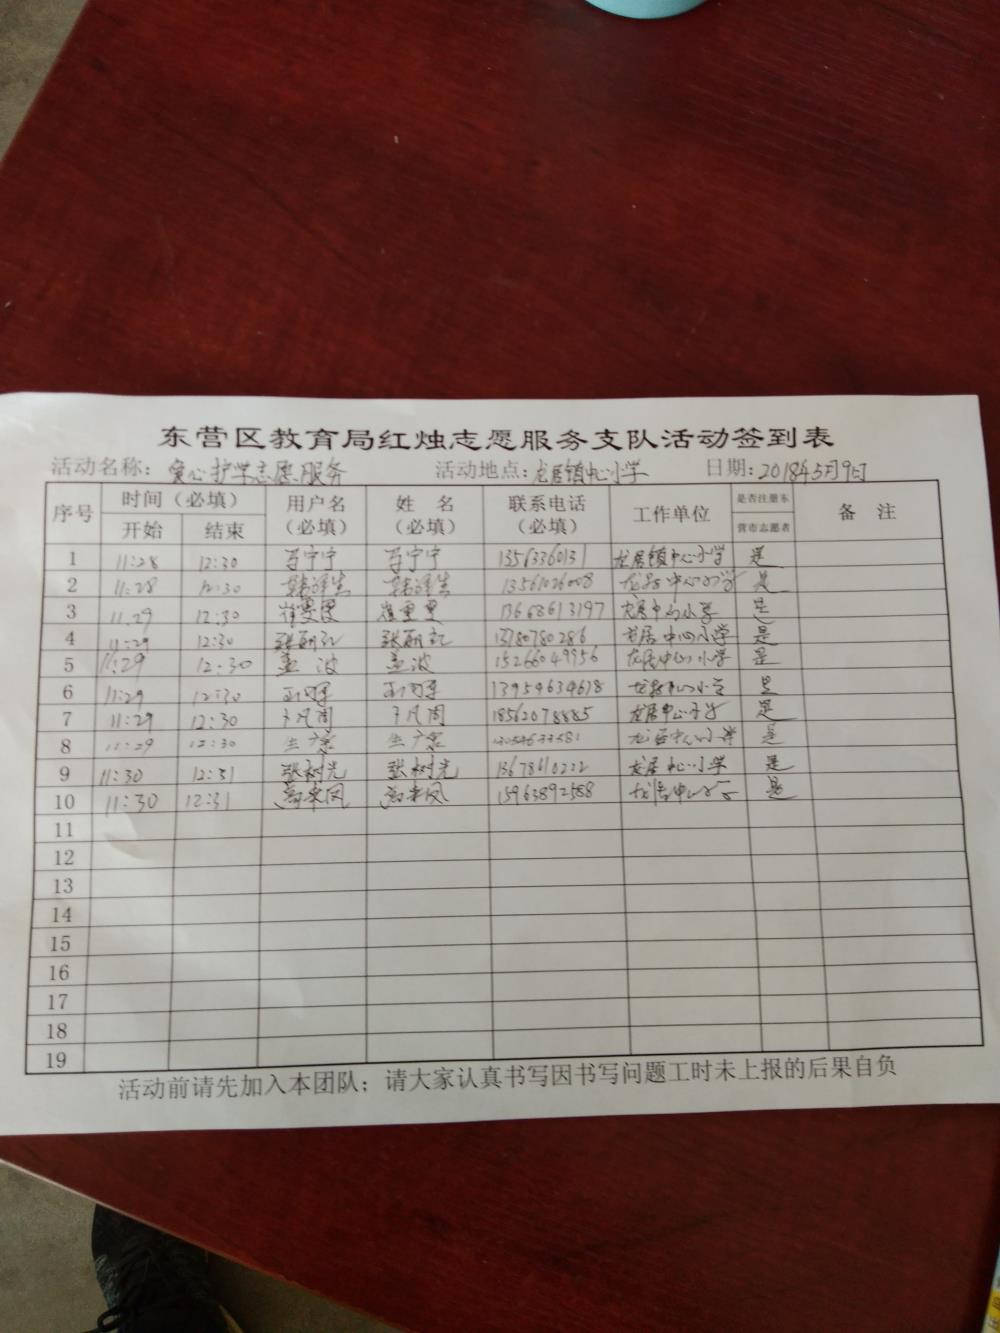 东营区教育局红烛志愿服务支队活动签到表
活动名称: 爱心护学志愿服务 活动地点: 龙居镇中心小学 日期: 2018年5月9日
序号 时间（必填） 用户名（必填） 姓 名（必填） 联系电话（必填） 工作单位 是否注册东营市志愿者 备 注
开始 结束
1 11:28 12:30 宁宁 宁宁 龙居镇中心小学 是
2 11:28 12:30 13561026008 龙居中心小学 是
3 11:29 12:30 崔 崔 13668613197 龙居中心小学 是
4 11:29 12:30 张 张 13780780286 龙居中心小学 是
5 11:29 12:30 孟波 孟波 15266049956 龙居中心小学 是
6 11:29 12:30 13954634618 龙居中心小学 是
7 11:29 12:30 卜凡周 卜凡周 18562078885 龙居中心小学 是
8 11:29 12:30 龙居中心小学 是
9 11:30 12:31 张树光 张树光 龙居中心小学 是
10 11:30 12:31 15963892588 龙居中心小学 是
11
12
13
14
15
16
17
18
19
活动前请先加入本团队；请大家认真书写因书写问题工时未上报的后果自负